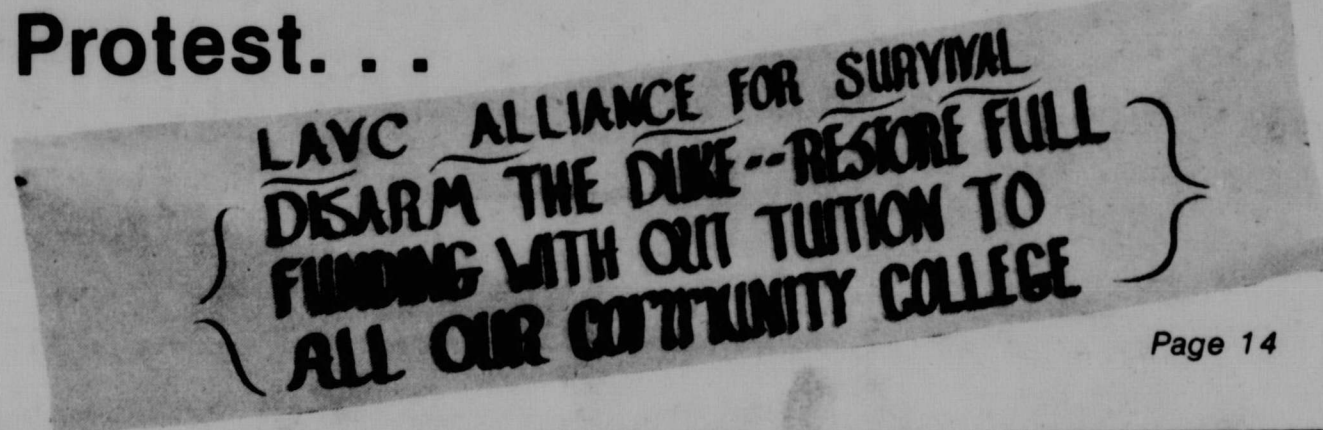 Protest. . .
LAVC ALLIANCE FOR SURVIVAL
DISARM THE DUKE--RESTORE FULL
FUNDING WITH OUT TUITION TO
ALL OUR COMMUNITY COLLEGE
Page 14